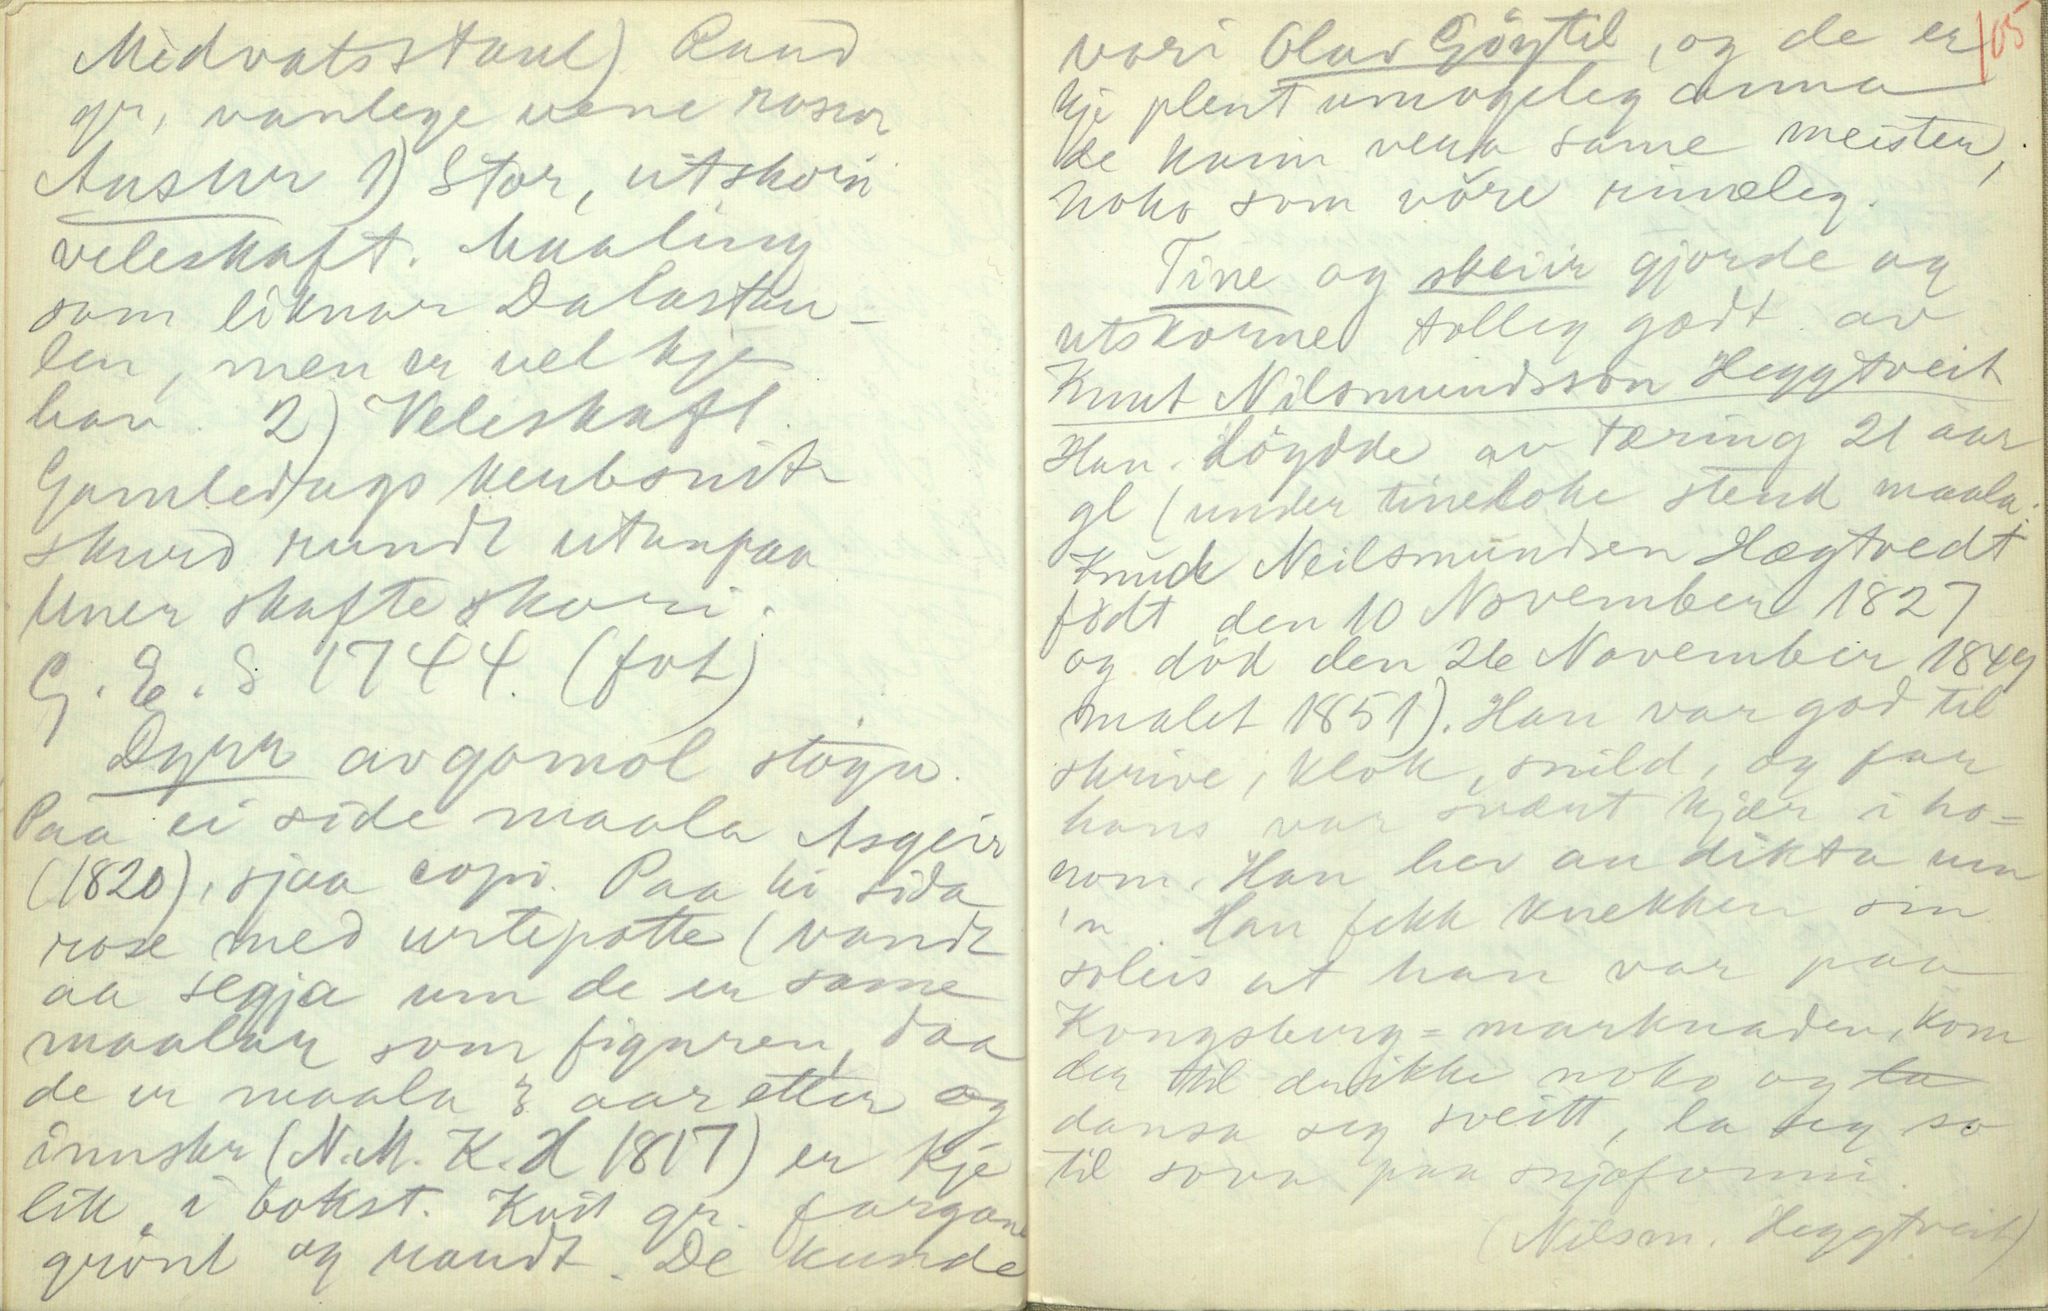 Midvatsstaul) Raud
gr, vanlege vene rosur
Auskur 1) Stor, utskorin
veleskaft. Maaling
som liknar Dalastau-
len, men er vel kje
hau. 2) Veleskaft.
Gamledags kerbsnit
skurd rundt utanpaa
skafteskori.
G. E. S 1744. (fot)
Dyrr av gomol stögu.
Paa ei side maala Asgeir
(1820), sjaa copi. Paa hi sida
rose med urtepotte (vandt
aa segja um de er same
maalar som figuren, daa
de er maala 3 aar etter og
innskr (N.M. K.H 1817) er kje
lik i bokst. Kvit gr. fargane
grönt og raudt. De kunde
105
vori Olav Göytil, og de er
kje plent umogeleg anna
de kann vera same meister,
noko som vöre rimeleg.
Tine og skeiir gjorde og
utskorne tolleg godt av
Knut Nilsmundsson Heggtveit
Han. döydde av tæring 21 aar
gl (under tineloke stend maala:
Knud Neilsmundsen Hægtvedt
födt den 10 November 1827
og död den 26 November 1849
malet 1851). Han var god til
skrive, klok, snild, og far
hans var svært kjær i ho=
nom. Han hev au dikta um
'n. Han fekk knekken sin
soleis at han var paa
Kongsberg=marknaden, kom
der til drikke noko og la
dansa seg sveitt, la seg so
til sova paa snjofonni.
(Nilsm. Heggtveit)